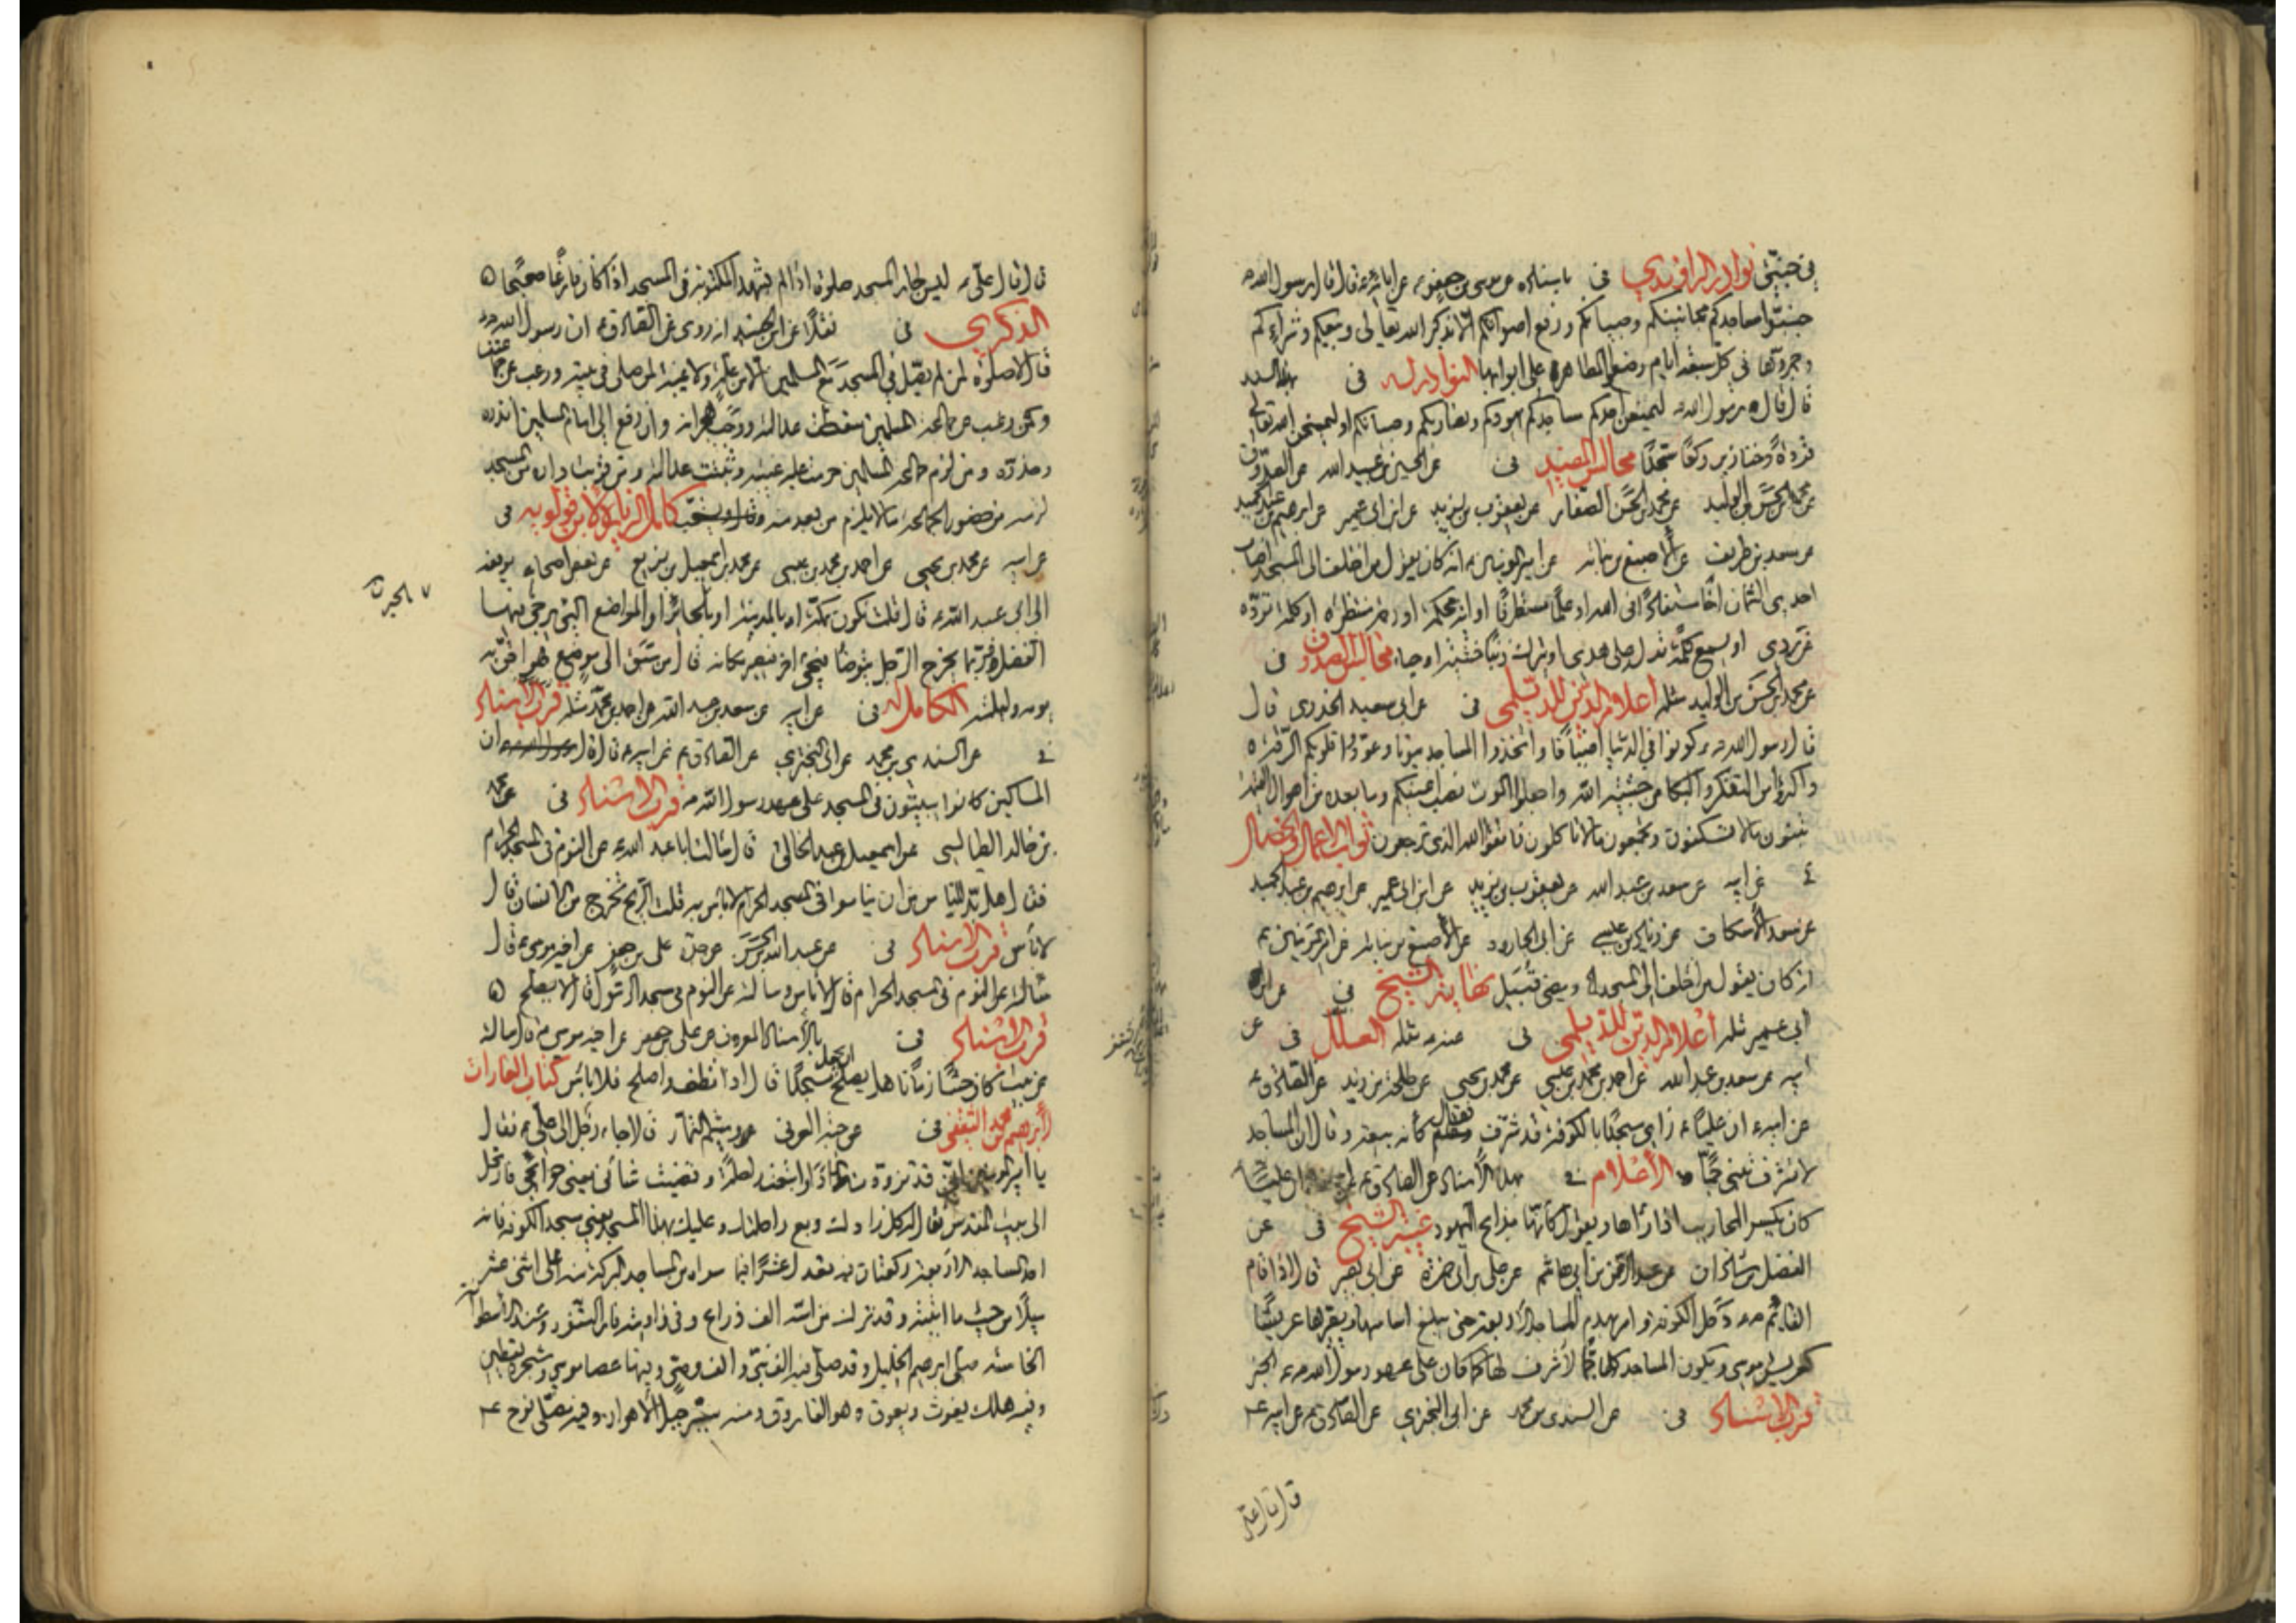 في جنبتي نوادر الراوندي في باسناده عن موسى بن جعفر عن ابائه ع قال قال رسول الله ص
جنبوا مساجدكم مجانينكم وصبيانكم ورفع اصواتكم الا بذكر الله تعالى وبيعكم وشراءكم
وجمروها في كل سبعة ايام وضعوا المطاهر على ابوابها النوادر له في بهذا السند
قال قال رسول الله ص ليمنعن احدكم مساجدكم يهودكم ونصاراكم وصبيانكم او ليمسخن الله تعالى
قردة وخنازير ركعا سجدا مجالس المفيد في عن الحسين بن عبيد الله عن الصدوق
عن محمد بن الحسن بن الوليد عن محمد بن الحسن الصفار عن يعقوب بن يزيد عن ابن ابي عمير عن ابرهيم بن عبد الحميد
عن سعد بن طريف عن الاصبغ بن نباته عن امير المؤمنين ع انه كان يقول من اختلف الى المسجد اصاب
احدى الثمان اخا مستفادا في الله او علما مستطرفا او اية محكمة او رحمة منتظره او كلمة ترده
عن ردى او يسمع كلمة تدله على هدى او يترك ذنبا خشية او حياء مجالس الصدوق في
عن محمد بن الحسن بن الوليد مثله اعلام الدين للديلمي في عن ابي سعيد الخدري قال
قال رسول الله ص كونوا في الدنيا اضيافا واتخذوا المساجد بيوتا وعودوا قلوبكم الرقة
واكثروا من التفكر والبكا من خشية الله واجعلوا الموت نصب اعينكم وما بعده من اهوال القيمة
تبنون مالا تسكنون وتجمعون مالا تاكلون فاتقوا الله الذي ترجعون ثواب الاعمال الخصال
عن ابيه عن سعد بن عبد الله عن يعقوب بن يزيد عن ابن ابي عمير عن ابرهيم بن عبد الحميد
عن سعد الاسكاف عن زياد بن عيسى عن ابي الجارود عن الاصبغ بن نباته عن امير المؤمنين ع
انه كان يقول من اختلف الى المسجد ومضى قبيل نهاية الشيخ في عن ابن
ابي عمير مثله اعلام الدين للديلمي في عنه ع مثله العلل في عن
ابيه عن سعد بن عبد الله عن احمد بن محمد بن عيسى عن محمد بن يحيى عن طلحة بن زيد عن الصادق ع
عن ابيه ع ان عليا ع راى مسجدا بالكوفة قد شرف فقال كانه بيعة وقال ان المساجد
لا تشرف تبنى جما الاعلام في بهذا الاسناد عن الصادق ع ان عليا
كان يكسر المحاريب اذا راها ويقول كانها مذابح اليهود غيبة الشيخ في عن
الفضل بن شاذان عن عبد الرحمن بن ابي هاشم عن علي بن ابي حمزة عن ابي بصير قال اذا قام
القائم ع دخل الكوفة وامر بهدم المساجد الاربعة حتى يبلغ اساسها ويصيرها عريشا
كعريش موسى ويكون المساجد كلها جما لا شرف لها كما كان على عهد رسول الله ص الخبر
قرب الاسناد في عن السندي بن محمد عن ابي البختري عن الصادق ع عن ابيه ع
قال قال علي
قال قال علي ع ليس لجار المسجد صلوة اذا لم يشهد المكتوبة في المسجد اذا كان فارغا صحيحا
الذكرى في نقلا عن ابن الجنيد انه روى عن الصادق ع ان رسول الله ص
قال لا صلوة لمن لم يصل في المسجد مع المسلمين الا من علة ولا غيبة لمن صلى في بيته ورغب عن جماعتنا
ومن رغب عن جماعة المسلمين سقطت عدالته ووجب هجرانه وان رفع الى امام المسلمين انذره
وحذره ومن لزم جماعة المسلمين حرمت عليهم غيبته وثبتت عدالته ومن قربت داره من المسجد
لزمه من حضور الجماعة مالا يلزم من بعد منه كامل الزيارة لابن قولويه في
عن ابيه عن محمد بن يحيى عن احمد بن محمد بن عيسى عن محمد بن اسمعيل بن بزيع عن بعض اصحابه يرفعه
الى ابي عبد الله ع قال قلت نكون بمكة او بالمدينة او بالحائر او المواضع التي يرجى فيها
الفضل فربما يخرج الرجل يتوضا فيجئ اخر فيصير مكانه قال من سبق الى موضع فهو احق به
يومه وليلته الكامل له في عن ابيه عن سعد بن عبد الله عن احمد بن محمد مثله قرب الاسناد
في عن السندي بن محمد عن ابي البختري عن الصادق ع عن ابيه ع قال ان
المساكين كانوا يبيتون في المسجد على عهد رسول الله ص قرب الاسناد في عن محمد
بن خالد الطيالسي عن اسمعيل بن عبد الخالق قال سالت ابا عبد الله ع عن النوم في المسجد الحرام
فقال هل بد للناس من ان يناموا في المسجد الحرام لا باس به قلت الريح تخرج من الانسان قال
لا باس قرب الاسناد في عن عبد الله بن الحسن عن جده علي بن جعفر عن اخيه موسى ع قال
سالته عن النوم في المسجد الحرام قال لا باس وسالته عن النوم في مسجد الرسول قال لا يصلح
قرب الاسناد في بالاسناد المعروف عن علي بن جعفر عن اخيه موسى ع قال سالته
عن بيت كان حشا زمانا هل يصلح ان يجعل مسجدا قال اذا نظف واصلح فلا باس كتاب الغارات
لابرهيم بن محمد الثقفي في عن حبة العرني وميثم التمار قال جاء رجل الى علي ع فقال
يا امير المؤمنين اني قد تزودت زادا وابتعت راحلة وقضيت شاني يعني حوائجي فارتحل
الى بيت المقدس فقال له كل زادك وبع راحلتك وعليك بهذا المسجد يعني مسجد الكوفة فانه
احد المساجد الاربعة ركعتان فيه تعدل عشرا فيما سواه من المساجد البركة منه على اثنى عشر
ميلا من حيث ما اتيته وقد ترك من اسه الف ذراع وفي زاويته فار التنور وعند الاسطوانة
الخامسة صلى ابرهيم الخليل وقد صلى فيه الف نبي والف وصي وفيها عصا موسى وشجرة يقطين
وفيه هلك يغوث ويعوق وهو الفاروق ومنه سير جبل الاهواز وفيه مصلى نوح ع